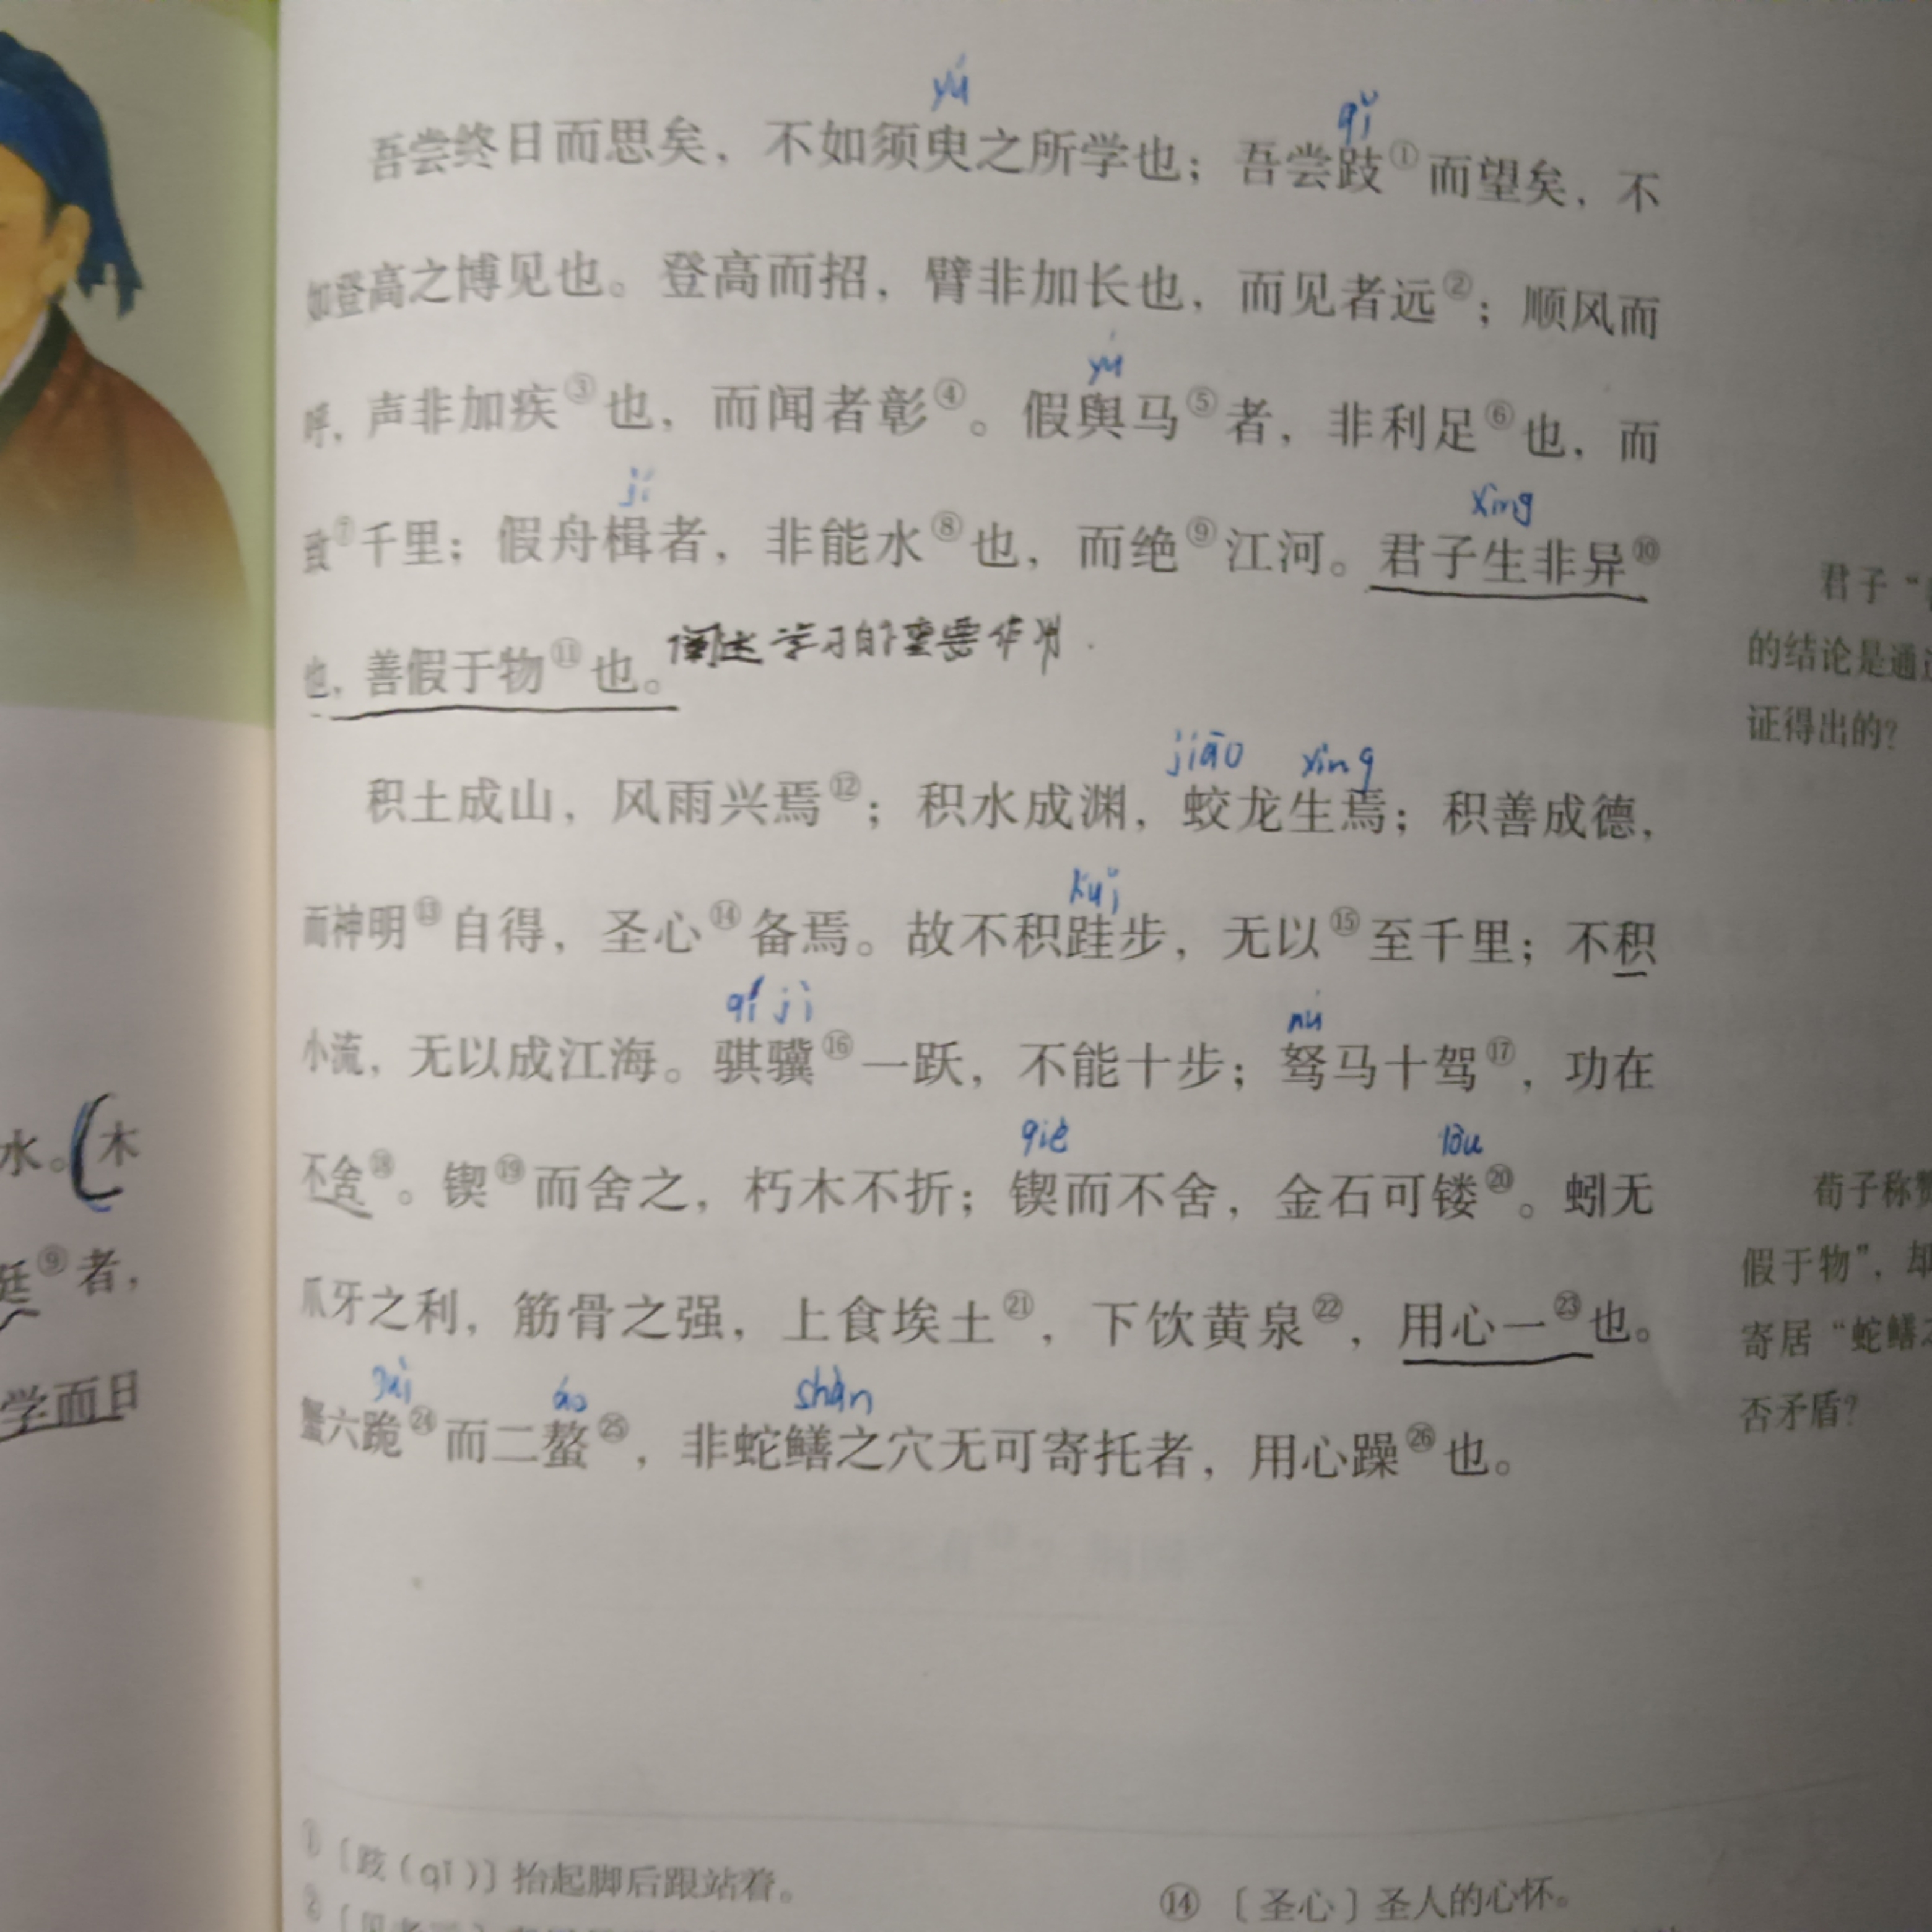 水。木
者，
学而日
yú
qǐ
吾尝终日而思矣，不如须臾之所学也；吾尝跂①而望矣，不
如登高之博见也。登高而招，臂非加长也，而见者远②；顺风而
yú
呼，声非加疾③也，而闻者彰④。假舆马⑤者，非利足⑥也，而
jí
xìng
致⑦千里；假舟楫者，非能水⑧也，而绝⑨江河。君子生非异⑩
也，善假于物⑪也。阐述学习的重要作用.
jiāo xìng
积土成山，风雨兴焉⑫；积水成渊，蛟龙生焉；积善成德，
kuǐ
而神明⑬自得，圣心⑭备焉。故不积跬步，无以⑮至千里；不积
qí jì
nú
小流，无以成江海。骐骥⑯一跃，不能十步；驽马十驾⑰，功在
qiè
lòu
不舍⑱。锲⑲而舍之，朽木不折；锲而不舍，金石可镂⑳。蚓无
爪牙之利，筋骨之强，上食埃土㉑，下饮黄泉㉒，用心一㉓也。
áo
shàn
蟹六跪㉔而二螯㉕，非蛇鳝之穴无可寄托者，用心躁㉖也。
君子“
的结论是通
证得出的？
荀子称
假于物”，却
寄居“蛇鳝
否矛盾？
①〔跂（qǐ）〕抬起脚后跟站着。
⑭〔圣心〕圣人的心怀。